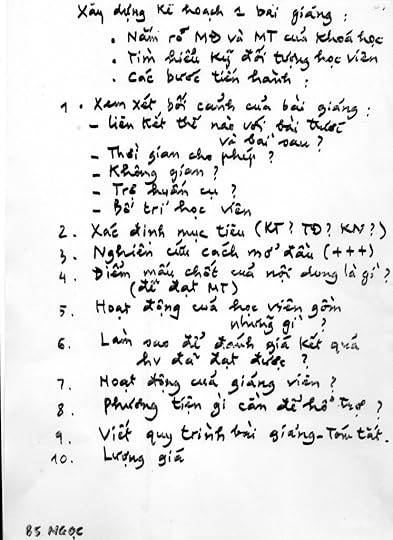 Xây dựng kế hoạch 1 bài giảng :
• Nắm rõ MĐ và MT của khoá học
• Tìm hiểu kỹ đối tượng học viên
• Các bước tiến hành :
1. Xem xét bối cảnh của bài giảng :
- liên kết thế nào với bài trước
và bài sau ?
- Thời gian cho phép ?
- Không gian ?
- Trợ huấn cụ ?
- Bố trí học viên
2. Xác định mục tiêu (KT? TĐ? KN?)
3. Nghiên cứu cách mở đầu (+++)
4. Điểm mấu chốt của nội dung là gì ?
(để đạt MT)
5. Hoạt động của học viên gồm
những gì ?
6. Làm sao để đánh giá kết quả
hv đã đạt được ?
7. Hoạt động của giảng viên ?
8. Phương tiện gì cần để hỗ trợ ?
9. Viết quy trình bài giảng - Tóm tắt.
10. Lượng giá
BS NGỌC